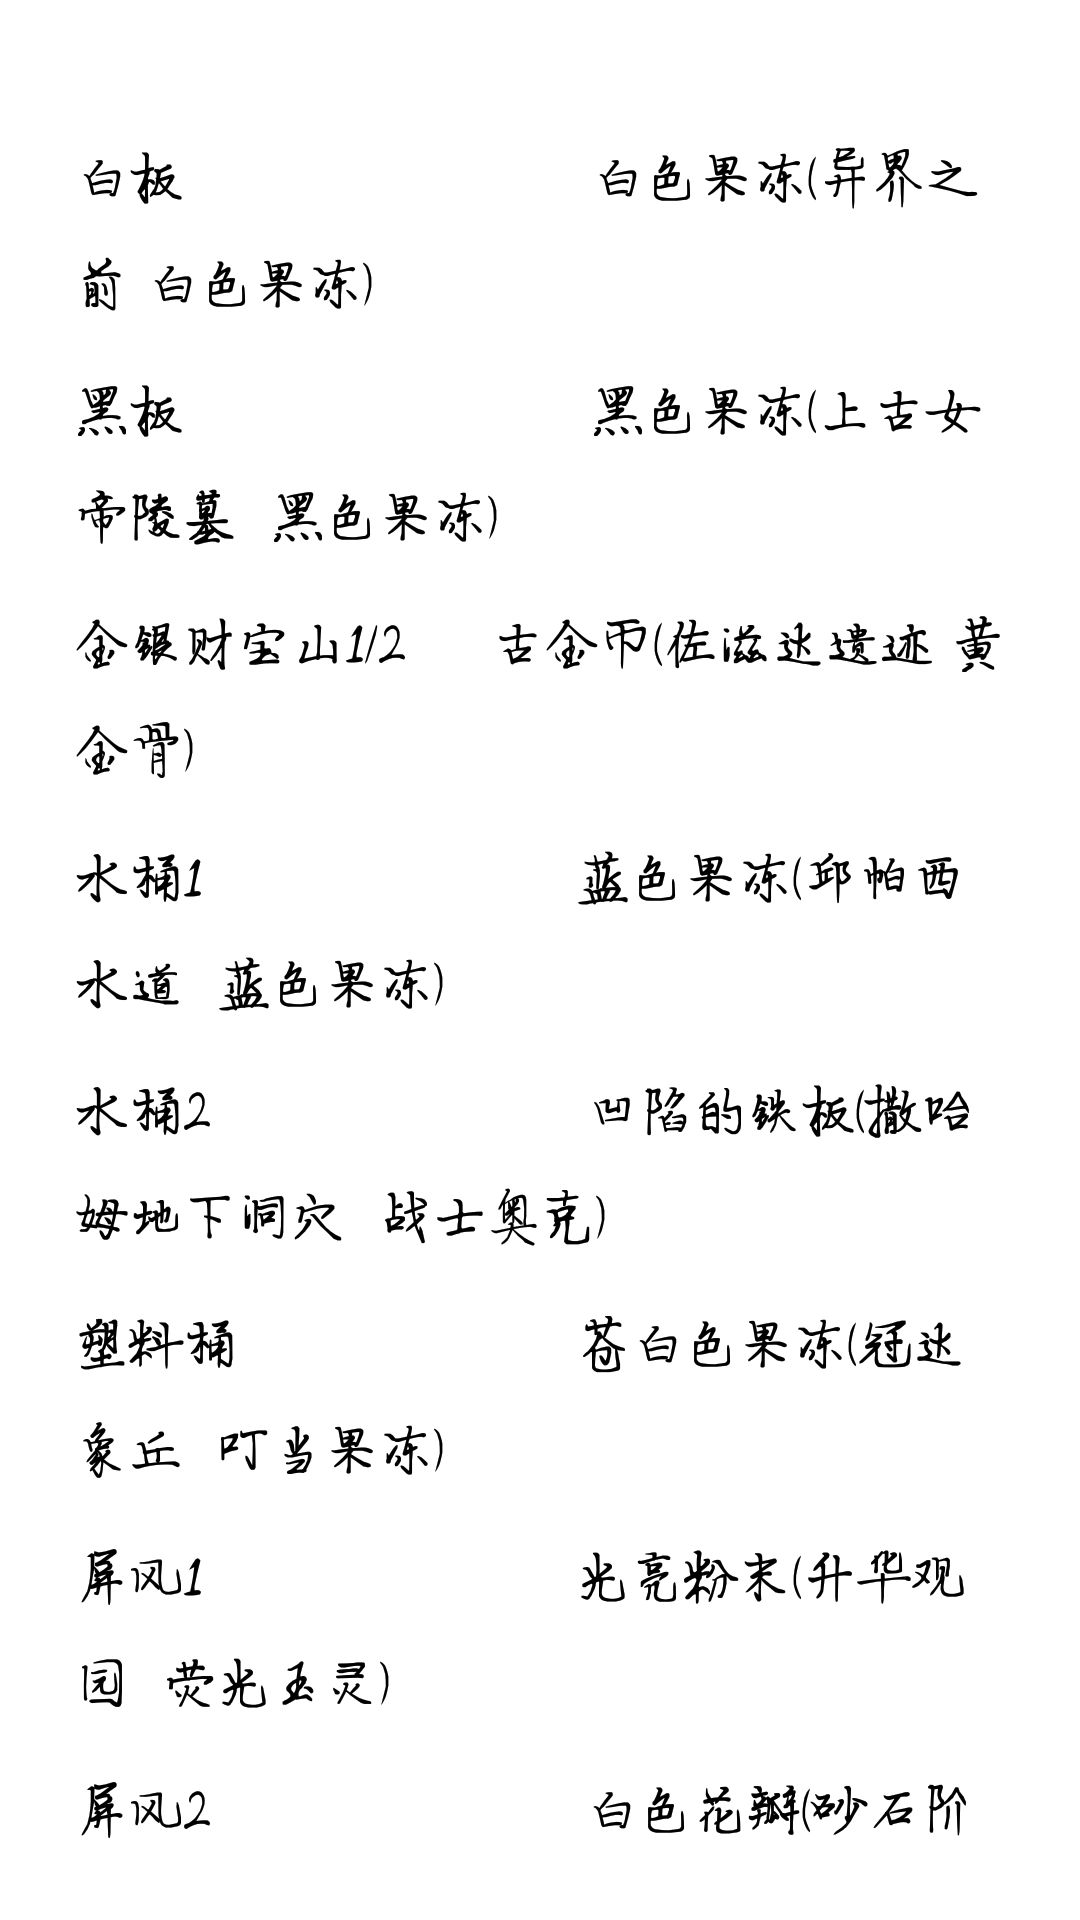 白板 白色果冻(异界之
前 白色果冻)
黑板 黑色果冻(上古女
帝陵墓 黑色果冻)
金银财宝山1/2 古金币(佐滋迷遗迹 黄
金骨)
水桶1 蓝色果冻(邱帕西
水道 蓝色果冻)
水桶2 凹陷的铁板(撒哈
姆地下洞穴 战士奥克)
塑料桶 苍白色果冻(冠迷
象丘 叮当果冻)
屏风1 光亮粉末(升华观
园 荧光玉灵)
屏风2 白色花瓣(砂石阶